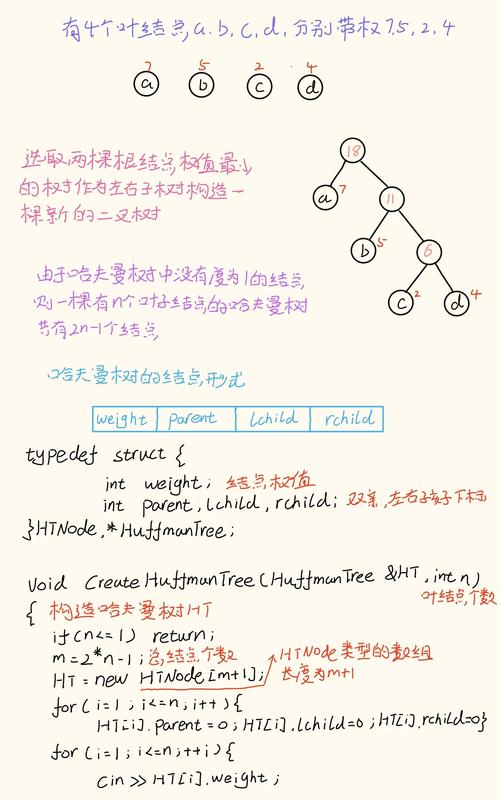 有4个叶结点,a.b,c,d,分别带权7.5,2,4
7 5 2 4
a b c d
选取两棵根结点权值最小
的树作为左右子树构造一
棵新的二叉树
18
a 7 11
b 5 6
c 2 d 4
由于哈夫曼树中没有度为1的结点
则一棵有n个叶子结点的哈夫曼树
共有2n-1个结点
哈夫曼树的结点形式
weight parent lchild rchild
typedef struct {
int weight; 结点权值
int parent, lchild, rchild; 双亲,左右孩子下标
}HTNode,*HuffmanTree;
void CreateHuffmanTree(HuffmanTree &HT,int n)
叶结点个数
{ 构造哈夫曼树HT
if(n<=1) return;
m=2*n-1; 总结点个数
HTNode类型的数组
HT=new HTNode[m+1]; 长度为m+1
for(i=1;i<=n,i++){
HT[i].parent=0;HT[i].lchild=0;HT[i].rchild=0}
for(i=1;i<=n;++i){
cin>>HT[i].weight;